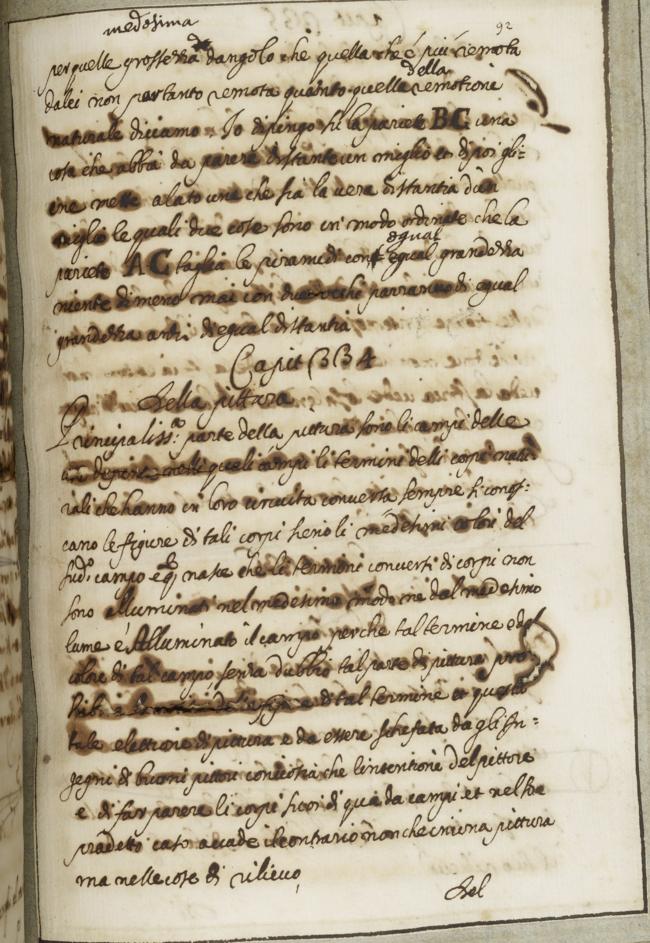 92
medesima
per quelle grossezza d'angolo che quella che é più remota
dalei non pertanto remota quanto quella della remotione
naturale diciamo. Io dipingo su la pariete BC una
cosa che abbia da parere distante un miglio et dipoi gli-
ene mette alato una che sia la vera distantia d'un
miglio le quali due cose sono in modo ordinate che la
pariete AC taglia le piramidi con equal equal grandezza
niente dimeno mai con due occhi parranno di equal
grandezza anzi di equal distantia
Capit 334
Della pittura
Principaliss.a parte della pittura sono li campi delle
dipinte nelli quali campi li termini delli corpi natu-
rali che hanno in loro circuita conversa sempre si conos-
cano le figure di tali corpi se no li medesimi colori del
sud.o campo e q.o nasce che li termini conversi di corpi non
sono alluminati nel medesimo modo ne dal medesimo
lume é Alluminato il campo perche tal termine e del
colore di tal campo senza dubbio tal parte di pittura pro-
e di tal termine et queste
tale elettione di pittura e da essere schifata da gli In-
gegni di buoni pittori conciosia che l'intentione del pittore
e di far parere li corpi fuor di qua da campi et nel so
pradetto caso accade il contrario non che in una pittura
ma nelle cose di rilievo
Del